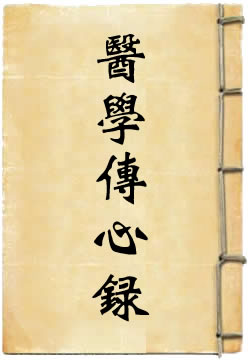 醫學傳心録